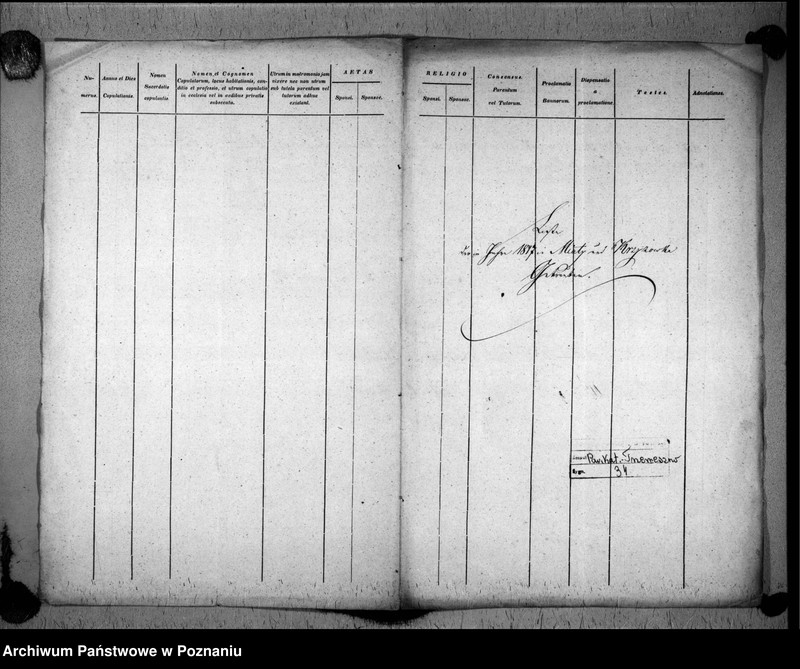 Nu-
merus.
Annus et Dies
Copulationis.
Nomen
Sacerdotis
copulantis
Nomen et Cognomen
Copulatorum, locus habitationis, con-
ditio et professio, et utrum copulatio
in ecclesia vel in aedibus privatis
subsecuta.
Utrum in matrimonio jam
vixere nec non utrum
sub tutela parentum vel
tutorum adhuc
existant.
AETAS
Sponsi.
Sponsae.
RELIGIO
Sponsi.
Sponsae.
Consensus
Parentum
vel Tutorum.
Proclamatio
Bannorum.
Dispensatio
a
proclamatione.
Testes.
Adnotationes.
Liste
Jahre 1817 in
Getrauten.
Par. Kat. Trzemeszno
34
Archiwum Państwowe w Poznaniu